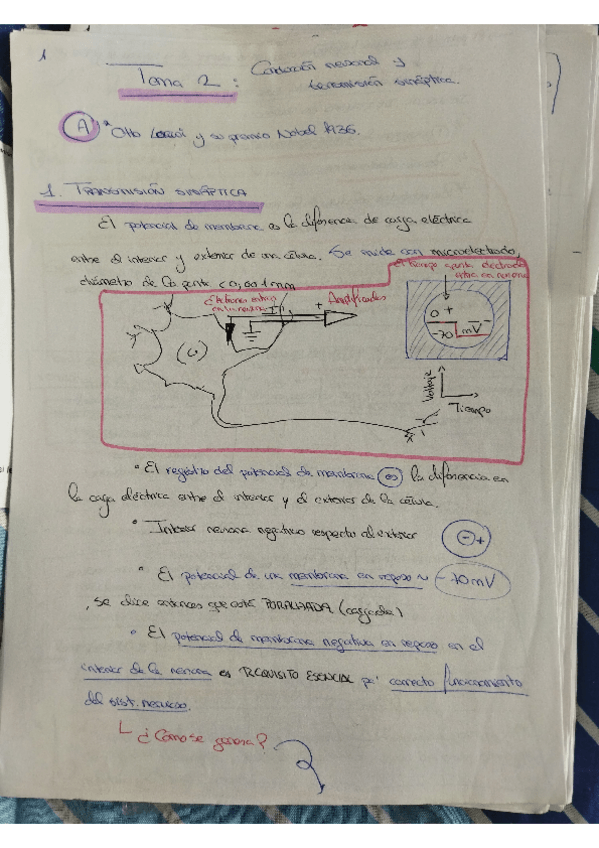 1
Tema 2: Conducción neuronal y
transmisión sináptica.
A * Otto Loewi y su premio Nobel 1936.
1. TRANSMISIÓN SINÁPTICA
El potencial de membrana es la diferencia de carga eléctrica
entre el interior y exterior de una célula. Se mide con microelectrodo,
diámetro de la punta < 0,001 mm
El tiempo q punta electrodo
entra en neurona
Electrodo
en la neurona
+ Amplificador
0 +
-70 mV -
Voltaje
Tiempo
• El registro del potencial de membrana es la diferencia en
la carga eléctrica entre el interior y el exterior de la célula.
• Interior neurona negativo respecto al exterior
- +
• El potencial de una membrana en reposo ~ -70mV
, se dice entonces que está POLARIZADA (cargada)
• El potencial de membrana negativa en reposo en el
interior de la neurona es REQUISITO ESENCIAL pa' correcto funcionamiento
del sist. nervioso.
¿Cómo se genera?